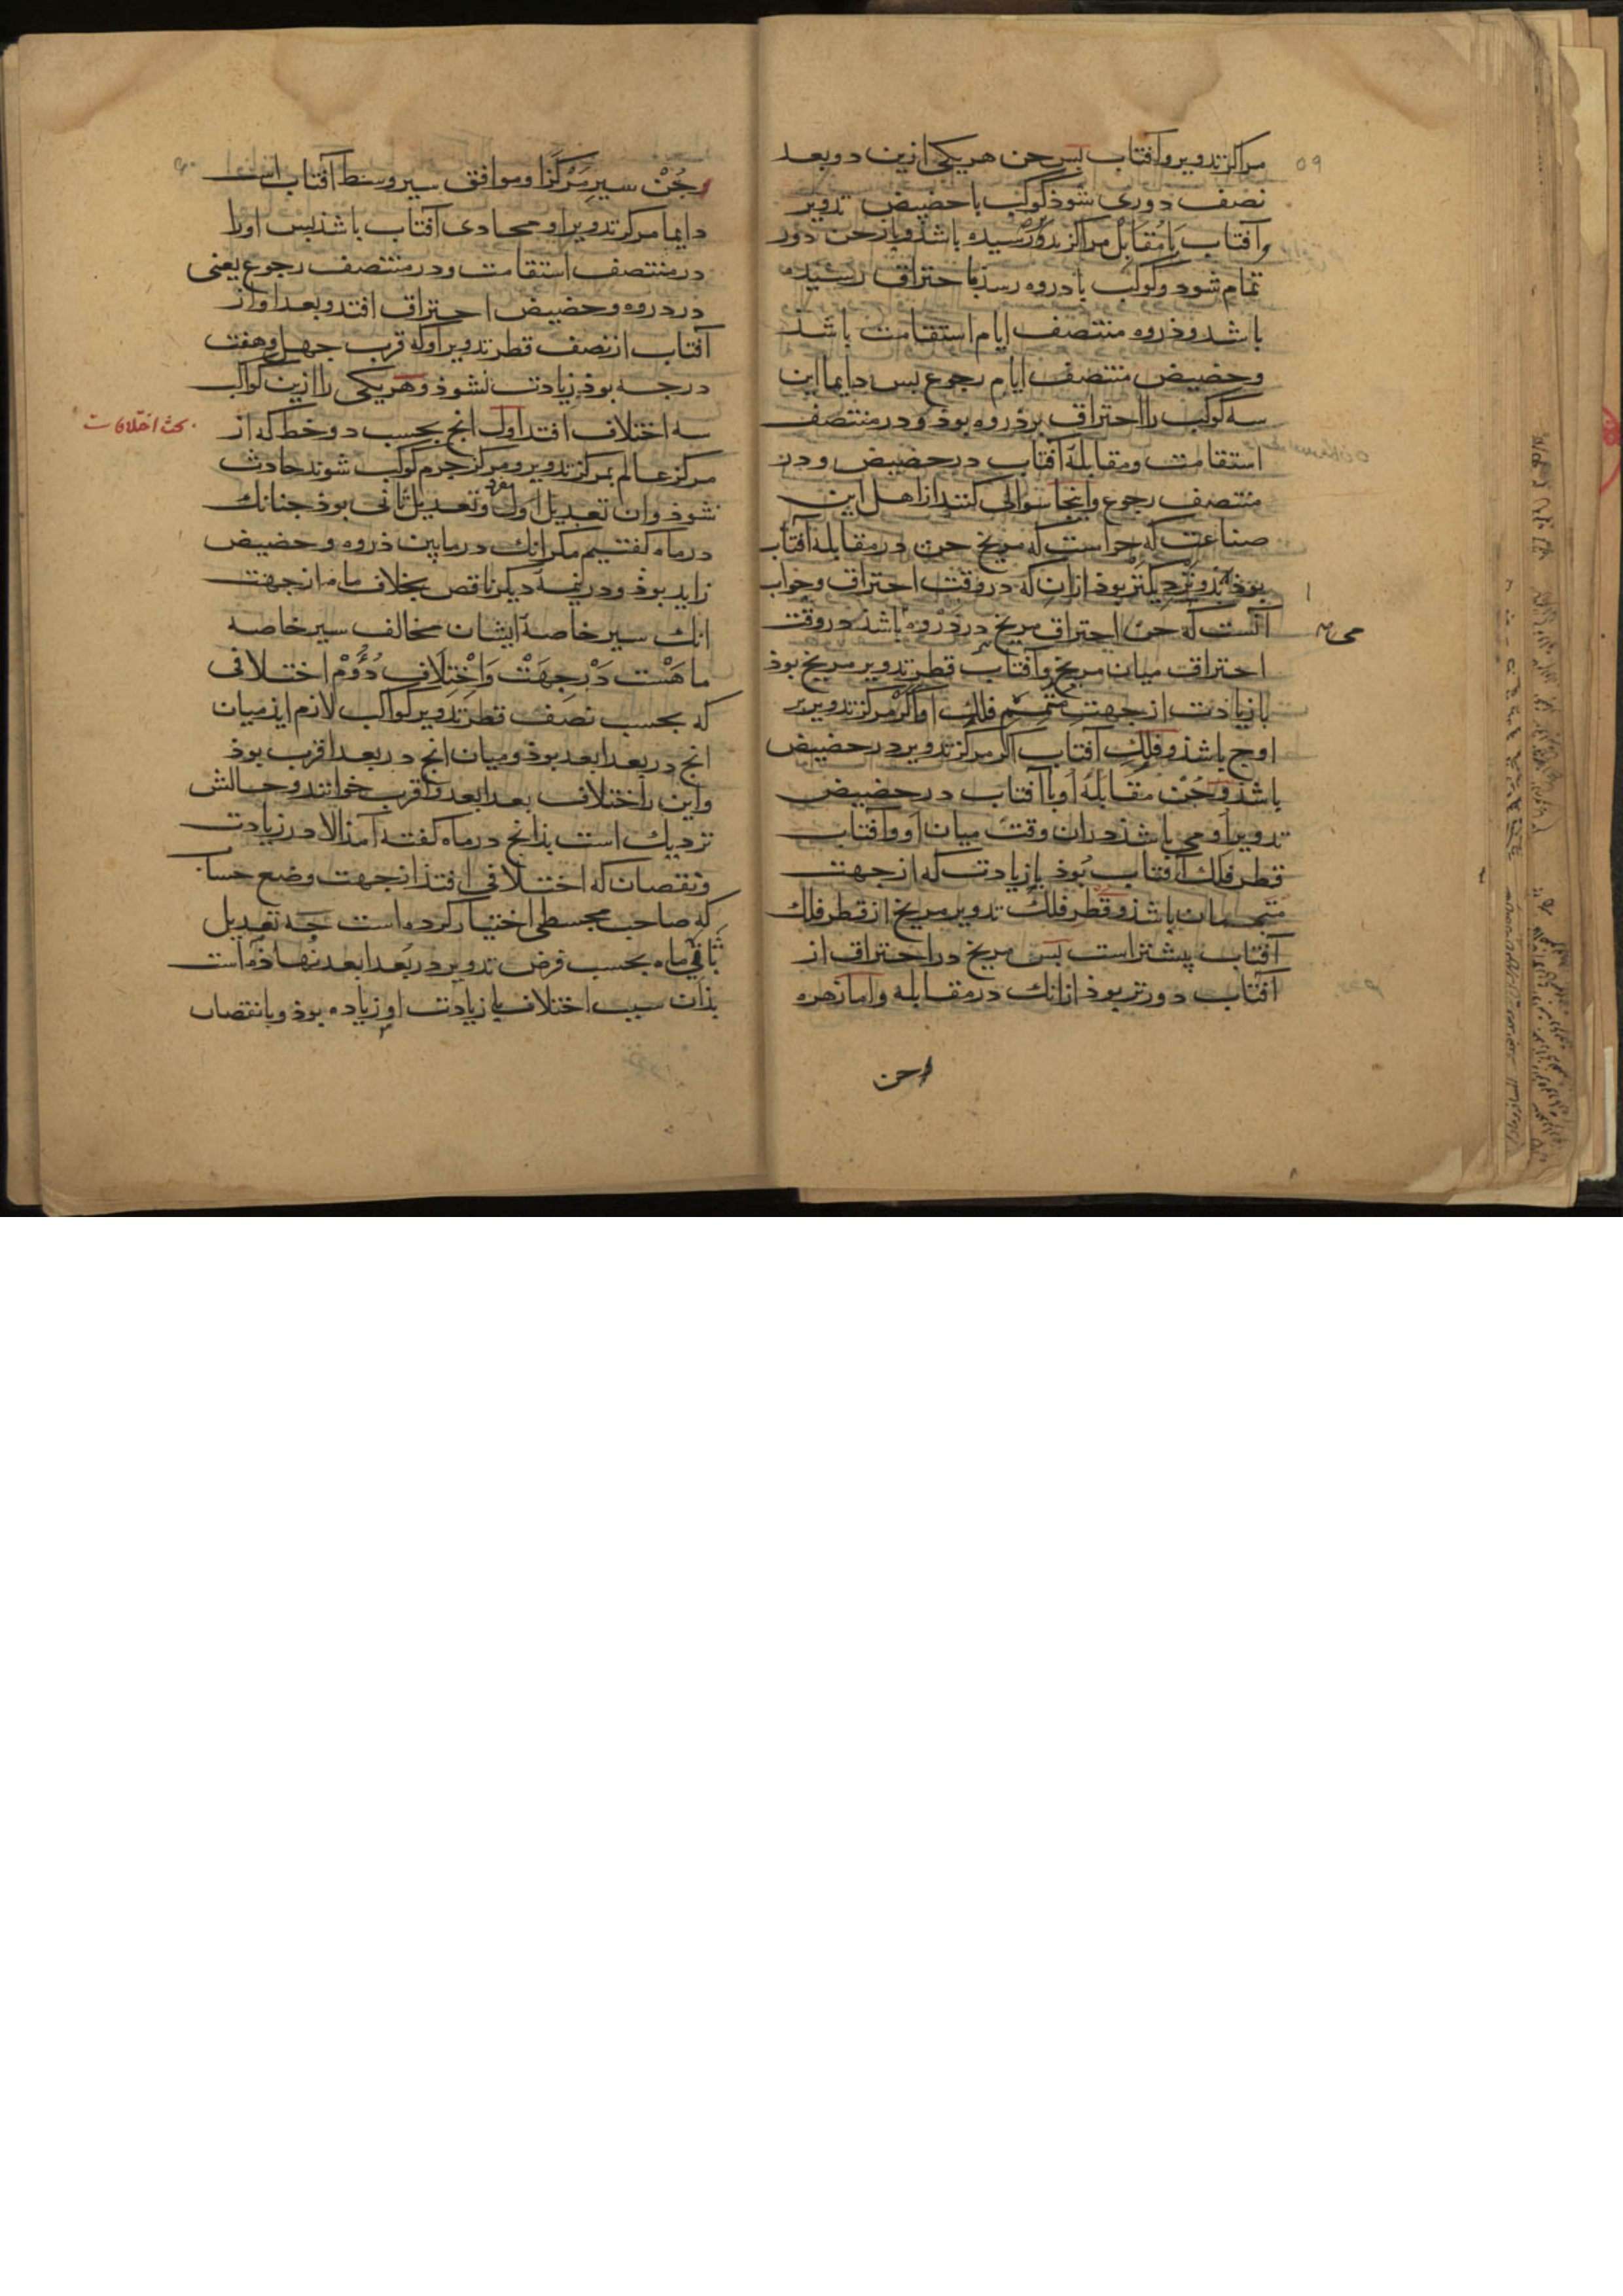 مراکز تدویر و آفتاب بس جن هر یکی ازین دو بعد
نصف دوری شوذ کوکب با حضیض تدویر
و آفتاب با مقابل مراکز تدویر رسیده باشذ و باز جن دور
تمام شوذ و کوکب با دروه رسذ با حتراق رسیده
باشد و ذروه منتصف ایام استقامت باشذ
و حضیض منتصف ایام رجوع بس دایما این
سه کوکب را احتراق بر ذروه بوذ و در منتصف
استقامت و مقابلهٔ آفتاب در حضیض و در
منتصف رجوع و اینجا سوالی کنند از اهل این
صناعت که جراست که مریخ جن در مقابلهٔ آفتاب
بوذ بذو نزدیکتر بوذ ازان که در وقت احتراق و جواب
آنست که جن احتراق مریخ در دروه باشذ در وقت
احتراق میان مریخ و آفتاب قطر تدویر مریخ بوذ
با زیادت از جهت متمم فلک او اکر مرکز تدویر بر
اوج باشذ و فلک آفتاب اکر مرکز تدویر در حضیض
باشذ و جن مقابلهٔ او با آفتاب در حضیض
تدویر او می باشذ دران وقت میان او و آفتاب
قطر فلک آفتاب بوذ با زیادت که از جهت
متممان باشذ و قطر فلک تدویر مریخ از قطر فلک
آفتاب بیشتر است بس مریخ در احتراق از
آفتاب دورتر بوذ ازانک در مقابله و اما زهره
وجن
۵۹
وجن سیر مرکز او موافق سیر وسط آفتاب است
دایما مرکز تدویر او محادی آفتاب باشذ بس او را
در منتصف استقامت و در منتصف رجوع یعنی
در دروه و حضیض احتراق افتد و بعد او از
آفتاب از نصف قطر تدویر او که قرب جهل و هفت
درجه بوذ زیادت نشوذ و هر یکی را ازین کواکب
سه اختلاف افتد اول انج بحسب دو خط که از
بحث اختلافات
مرکز عالم بمرکز تدویر و مرکز جرم کوکب شوند حادث
شوذ و ان تعدیل اول و تعدیل ثانی بوذ جنانک
در ماه کفتیم مکر انک درمابین ذروه و حضیض
زاید بوذ و در نیمهٔ دیکر ناقص بخلاف ماه از جهت
انک سیر خاصهٔ ایشان مخالف سیر خاصه
ماهست در جهت و اختلاف دوم اختلافی
که بحسب نصف قطر تدویر کواکب لازم ایذ میان
انج در بعد ابعد بوذ و میان انج در بعد اقرب بوذ
و این را اختلاف بعد ابعد و اقرب خوانند و حالش
نزدیک است بذانج در ماه کفته آمذ الا در زیادت
و نقصان که اختلافی افتذ از جهت وضع حساب
که صاحب مجسطی اختیار کرده است جه تعدیل
ثانی ماه بحسب فرض تدویر در بعد ابعد نهاذه است
بذان سبب اختلاف با زیادت او زیاده بوذ و با نقصان